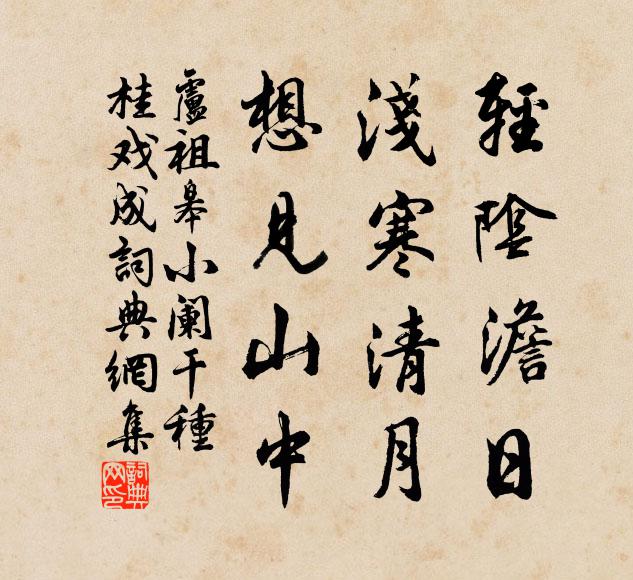 輕陰澹日
淺寒清月
想見山中
盧祖皋小闌干種
桂戏成詞典網集
詞典网印